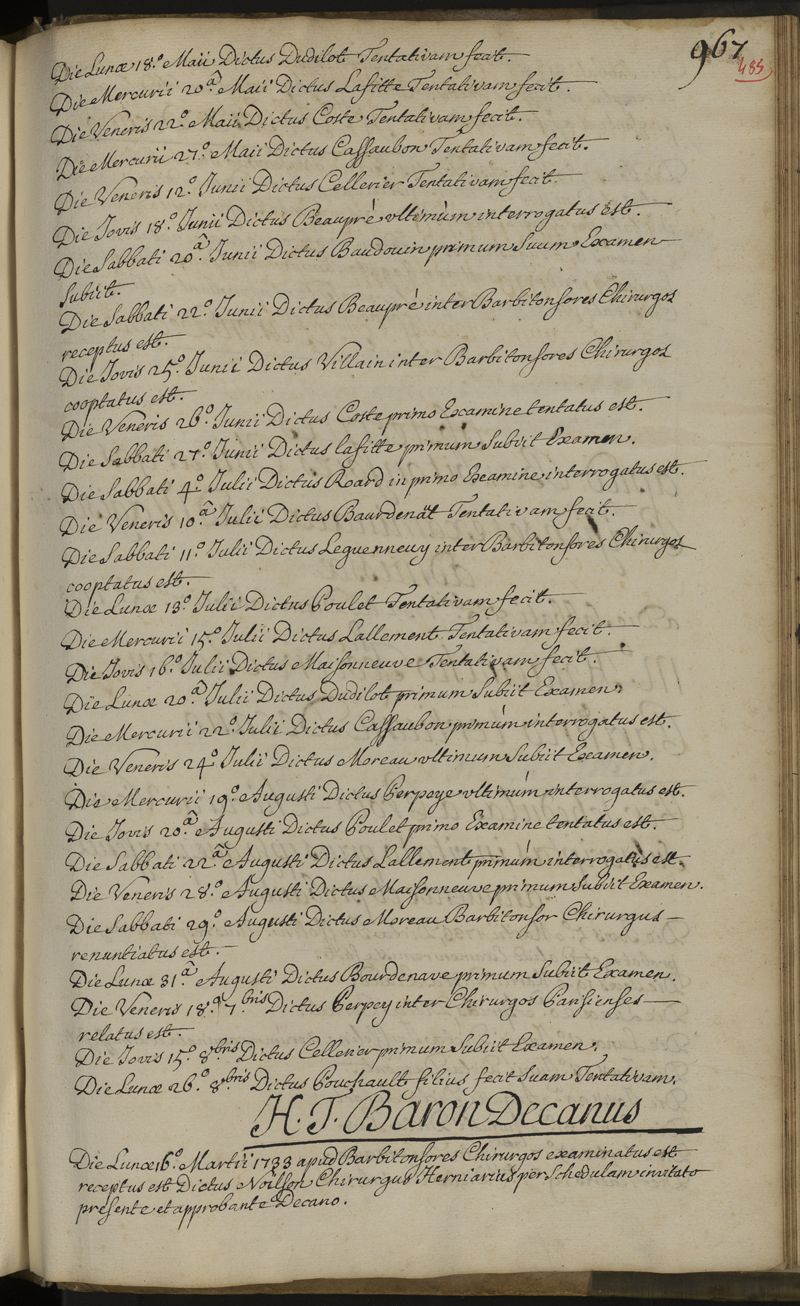 967
485
Die Lunæ 18.° Maii Dictus Dudilot Tentativam fecit.
Die Mercurii 20.ª Maii Dictus Lafitte Tentativam fecit.
Die Veneris 22.° Maii Dictus Coste Tentativam fecit.
Die Mercurii 27.° Maii Dictus Cassaubon Tentativam fecit.
Die Veneris 12.° Junii Dictus Cellerier Tentativam fecit.
Die Jovis 18.° Junii Dictus Beaupré ultimùm interrogatus est.
Die Sabbati 20.ª Junii Dictus Baudouin primum suum Examen
subiit.
Die Sabbati 22.° Junii Dictus Beaupré inter Barbitonsores Chirurgos
receptus est.
Die Jovis 25.° Junii Dictus Villain inter Barbitonsores Chirurgos
cooptatus est.
Die Veneris 26.° Junii Dictus Coste primo Examine tentatus est.
Die Sabbati 27.° Junii Dictus lafitte primum subiit Examen.
Die Sabbati 4.° Julii Dictus Roard in primo Examine interrogatus est.
Die Veneris 10.ª Julii Dictus Baurdenat Tentativam fecit.
Die Sabbati 11.° Julii Dictus Leguennevy inter Barbitonsores Chirurgos
cooptatus est.
Die Lunæ 13.° Julii Dictus Poulet Tentativam fecit.
Die Mercurii 15.° Julii Dictus Lallement Tentativam fecit.
Die Jovis 16.° Julii Dictus Maisonneuve Tentativam fecit.
Die Lunæ 20.ª Julii Dictus Dudilot primum subiit Examen.
Die Mercurii 22.° Julii Dictus Cassaubon primùm interrogatus est.
Die Veneris 24.° Julii Dictus Moreau ultimum subiit Examen.
Die Mercurii 19.° Augusti Dictus Perpeye ultimùm interrogatus est.
Die Jovis 20.ª Augusti Dictus Poulet primo Examine tentatus est.
Die Sabbati 22.ª Augusti Dictus Lallement primùm interrogatus est.
Die Veneris 28.° Augusti Dictus Maisonneuve primum subiit Examen.
Die Sabbati 29.° Augusti Dictus Moreau Barbitonsor Chirurgus —
renuntiatus est. —
Die Lunæ 31.ª Augusti Dictus Bourdenave primum subiit Examen.
Die Veneris 18.ª 7.bris Dictus Perpey inter Chirurgos Parisienses —
relatus est.
Die Jovis 15.° 8bris Dictus Cellerier primum subiit Examen.
Die Lunæ 26.° 8bris Dictus Pouchault filius fecit suam Tentativam.
H. T. Baron Decanus
Die Lunæ 16.° Martii 1733 apud Barbitonsores Chirurgos examinatus est
receptus est Dictus Noilson Chirurgus Herniarius per schedulam invitato
præsente et approbante Decano.